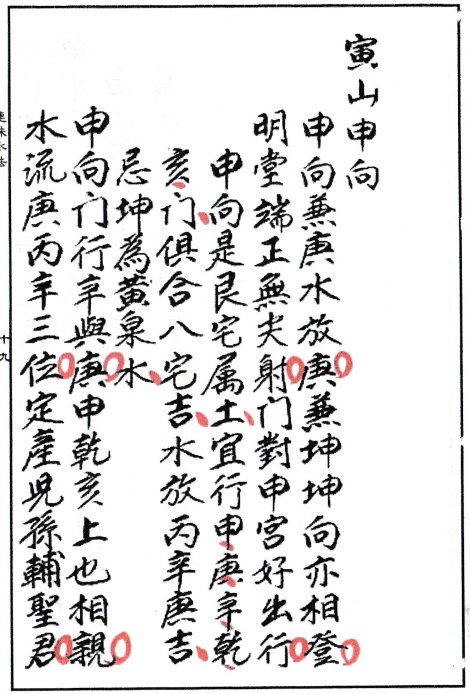 寅山申向
申向兼庚水放庚兼坤坤向亦相登
明堂端正無夫射门對申宮好出行
申向是艮宅属土宜行申庚辛乾
亥门俱合八宅吉水放丙辛庚吉
忌坤為黃泉水
申向门行辛與庚申乾亥上也相親
水流庚丙辛三位定產児孫輔聖君
十九